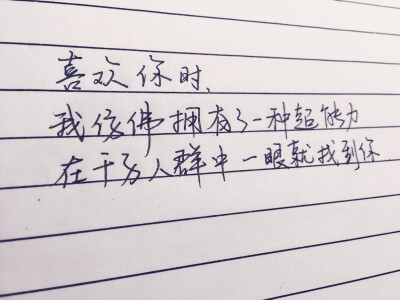 喜欢你时、
我仿佛拥有了一种超能力
在千万人群中一眼就找到你